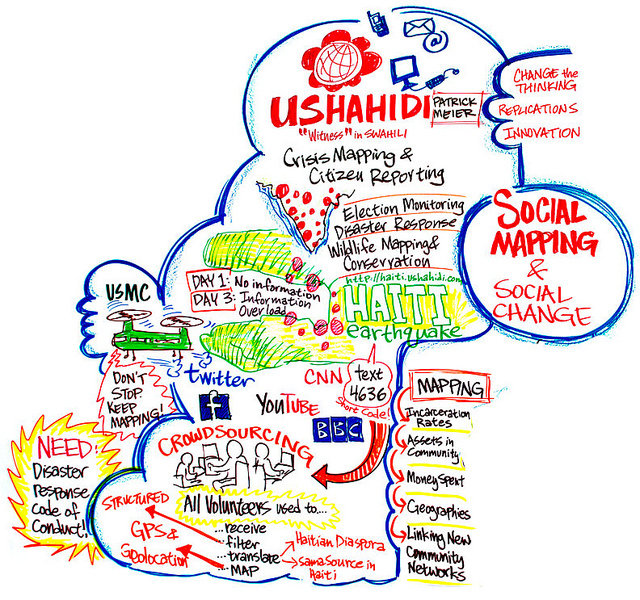 USHAHIDI
PATRICK
MEIER
"Witness" in SWAHILI
Crisis Mapping &
Citizen Reporting
Election Monitoring
Disaster Response
Wildlife Mapping &
Conservation
CHANGE the
THINKING
REPLICATIONS
INNOVATION
SOCIAL
MAPPING
&
SOCIAL
CHANGE
http://haiti.ushahidi.com
HAITI
earthquake
DAY 1: No information
DAY 3: Information
Overload
USMC
DON'T
STOP
KEEP
MAPPING!
twitter
CNN
text
4636
Short Code!
f
YOUTUBE
BBC
NEED:
Disaster
response
code of
Conduct!
CROWDSOURCING
All Volunteers used to...
...receive
...filter
...translate
...MAP
STRUCTURED
GPS &
Geolocation
Haitian Diaspora
SamaSource in
Haiti
MAPPING
Incarceration
Rates
Assets in
Community
Money Spent
Geographies
Linking New
Community
Networks
@